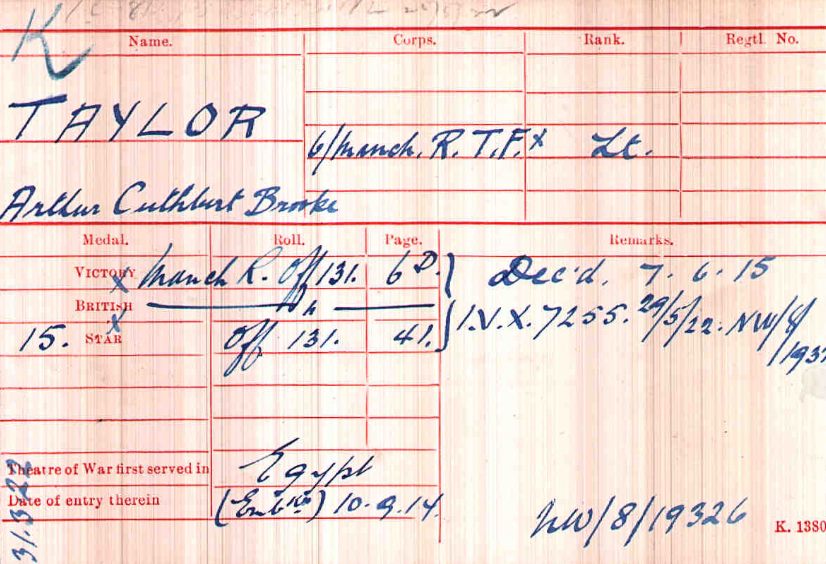 K
Name. Corps. Rank. Regtl. No.
TAYLOR
6/Manch. R. T.F.x Lt.
Arthur Cuthbert Brooke
Medal. Roll. Page. Remarks.
VICTORY x Manch R. Off 131. 6 D. Dec'd. 7. 6. 15
BRITISH
15. STAR x Off 131. 41. I.V.X. 7255. 29/5/22. NW/8/
Theatre of War first served in Egypt
Date of entry therein (Embkn) 10.9.14.
NW/8/19326
K. 1380
31.3.22